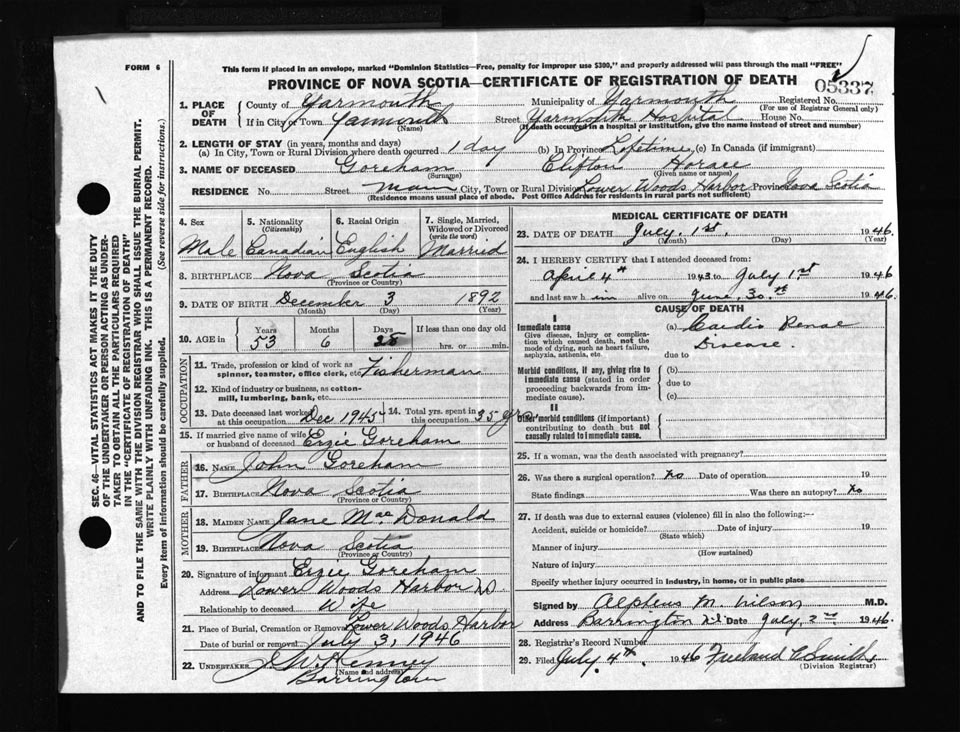 FORM 6
This form if placed in an envelope, marked "Dominion Statistics—Free, penalty for improper use $300," and properly addressed will pass through the mail "FREE"
PROVINCE OF NOVA SCOTIA—CERTIFICATE OF REGISTRATION OF DEATH
05337
Registered No.
(For use of Registrar General only)
1. PLACE OF DEATH
County of Yarmouth Municipality of Yarmouth
If in City or Town Yarmouth Street Yarmouth Hospital House No.
(Name) (If death occurred in a hospital or institution, give the name instead of street and number)
2. LENGTH OF STAY (in years, months and days)
(a) In City, Town or Rural Division where death occurred 1 day (b) In Province Lifetime (c) In Canada (if immigrant)
3. NAME OF DECEASED Goreham Clifton Horace
(Surname) (Given name or names)
RESIDENCE No. Street Main City, Town or Rural Division Lower Woods Harbor Province Nova Scotia
(Residence means usual place of abode. Post Office Address for residents in rural parts not usual)
4. Sex
Male
5. Nationality
(Citizenship)
Canadian
6. Racial Origin
English
7. Single, Married,
Widowed or Divorced
(write the word)
Married
8. BIRTHPLACE Nova Scotia
(Province or Country)
9. DATE OF BIRTH December 3 1892
(Month) (Day) (Year)
10. AGE in Years Months Days If less than one day old
53 6 28 hrs. or min.
OCCUPATION
11. Trade, profession or kind of work as
spinner, teamster, office clerk, etc. Fisherman
12. Kind of industry or business, as cotton-
mill, lumbering, bank, etc.
13. Date deceased last worked
at this occupation Dec 1945
14. Total yrs. spent in
this occupation 35 yrs.
15. If married give name of wife
or husband of deceased Erzie Goreham
FATHER
16. NAME John Goreham
17. BIRTHPLACE Nova Scotia
(Province or Country)
MOTHER
18. MAIDEN NAME Jane MacDonald
19. BIRTHPLACE Nova Scotia
(Province or Country)
20. Signature of informant Erzie Goreham
Address Lower Woods Harbor
Relationship to deceased Wife
21. Place of Burial, Cremation or Removal Lower Woods Harbor
Date of burial or removal July 3, 1946
22. UNDERTAKER J. W. Kenney
(Name and address)
Barrington
MEDICAL CERTIFICATE OF DEATH
23. DATE OF DEATH July. 1st. 1946
(Month) (Day) (Year)
24. I HEREBY CERTIFY that I attended deceased from:
April 4th 1943 to July 1st 1946
and last saw him alive on June. 30.th 1946.
CAUSE OF DEATH
I
Immediate cause
Give disease, injury or complica-
tion which caused death, not the
mode of dying, such as heart failure,
asphyxia, asthenia, etc
(a) Cardio Renal
Disease.
due to
Morbid conditions, if any, giving rise to
immediate cause (stated in order
proceeding backwards from im-
mediate cause).
(b)
due to
(c)
II
Other morbid conditions (if important)
contributing to death but not
causally related to immediate cause.
25. If a woman, was the death associated with pregnancy?
26. Was there a surgical operation? No Date of operation 19
State findings Was there an autopsy? No
27. If death was due to external causes (violence) fill in also the following:—
Accident, suicide or homicide? Date of injury 19
(State which)
Manner of injury
(How sustained)
Nature of injury
Specify whether injury occurred in industry, in home, or in public place
Signed by Alpheus M. Wilson M.D.
Address Barrington Date July, 2nd 1946.
28. Registrar's Record Number
29. Filed July 4th. 1946 Freeland C Smith
(Division Registrar)
SEC. 46—VITAL STATISTICS ACT MAKES IT THE DUTY
OF THE UNDERTAKER OR PERSON ACTING AS UNDER-
TAKER TO OBTAIN ALL THE PARTICULARS REQUIRED
IN THE "CERTIFICATE OF REGISTRATION OF DEATH"
AND TO FILE THE SAME WITH THE DIVISION REGISTRAR WHO SHALL ISSUE THE BURIAL PERMIT.
WRITE PLAINLY WITH UNFADING INK. THIS IS A PERMANENT RECORD.
Every item of information should be carefully supplied. (See reverse side for instructions.)